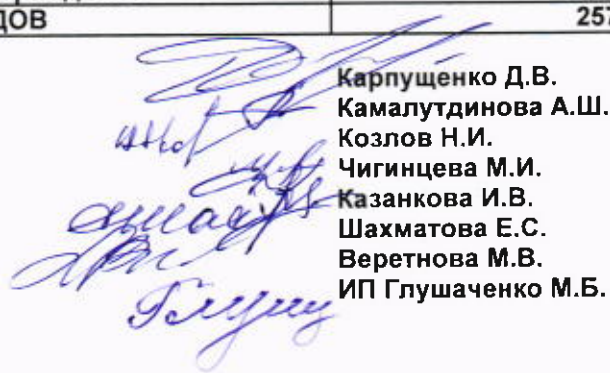 ДОВ 257
Карпущенко Д.В.
Камалутдинова А.Ш.
Козлов Н.И.
Чигинцева М.И.
Казанкова И.В.
Шахматова Е.С.
Веретнова М.В.
ИП Глушаченко М.Б.